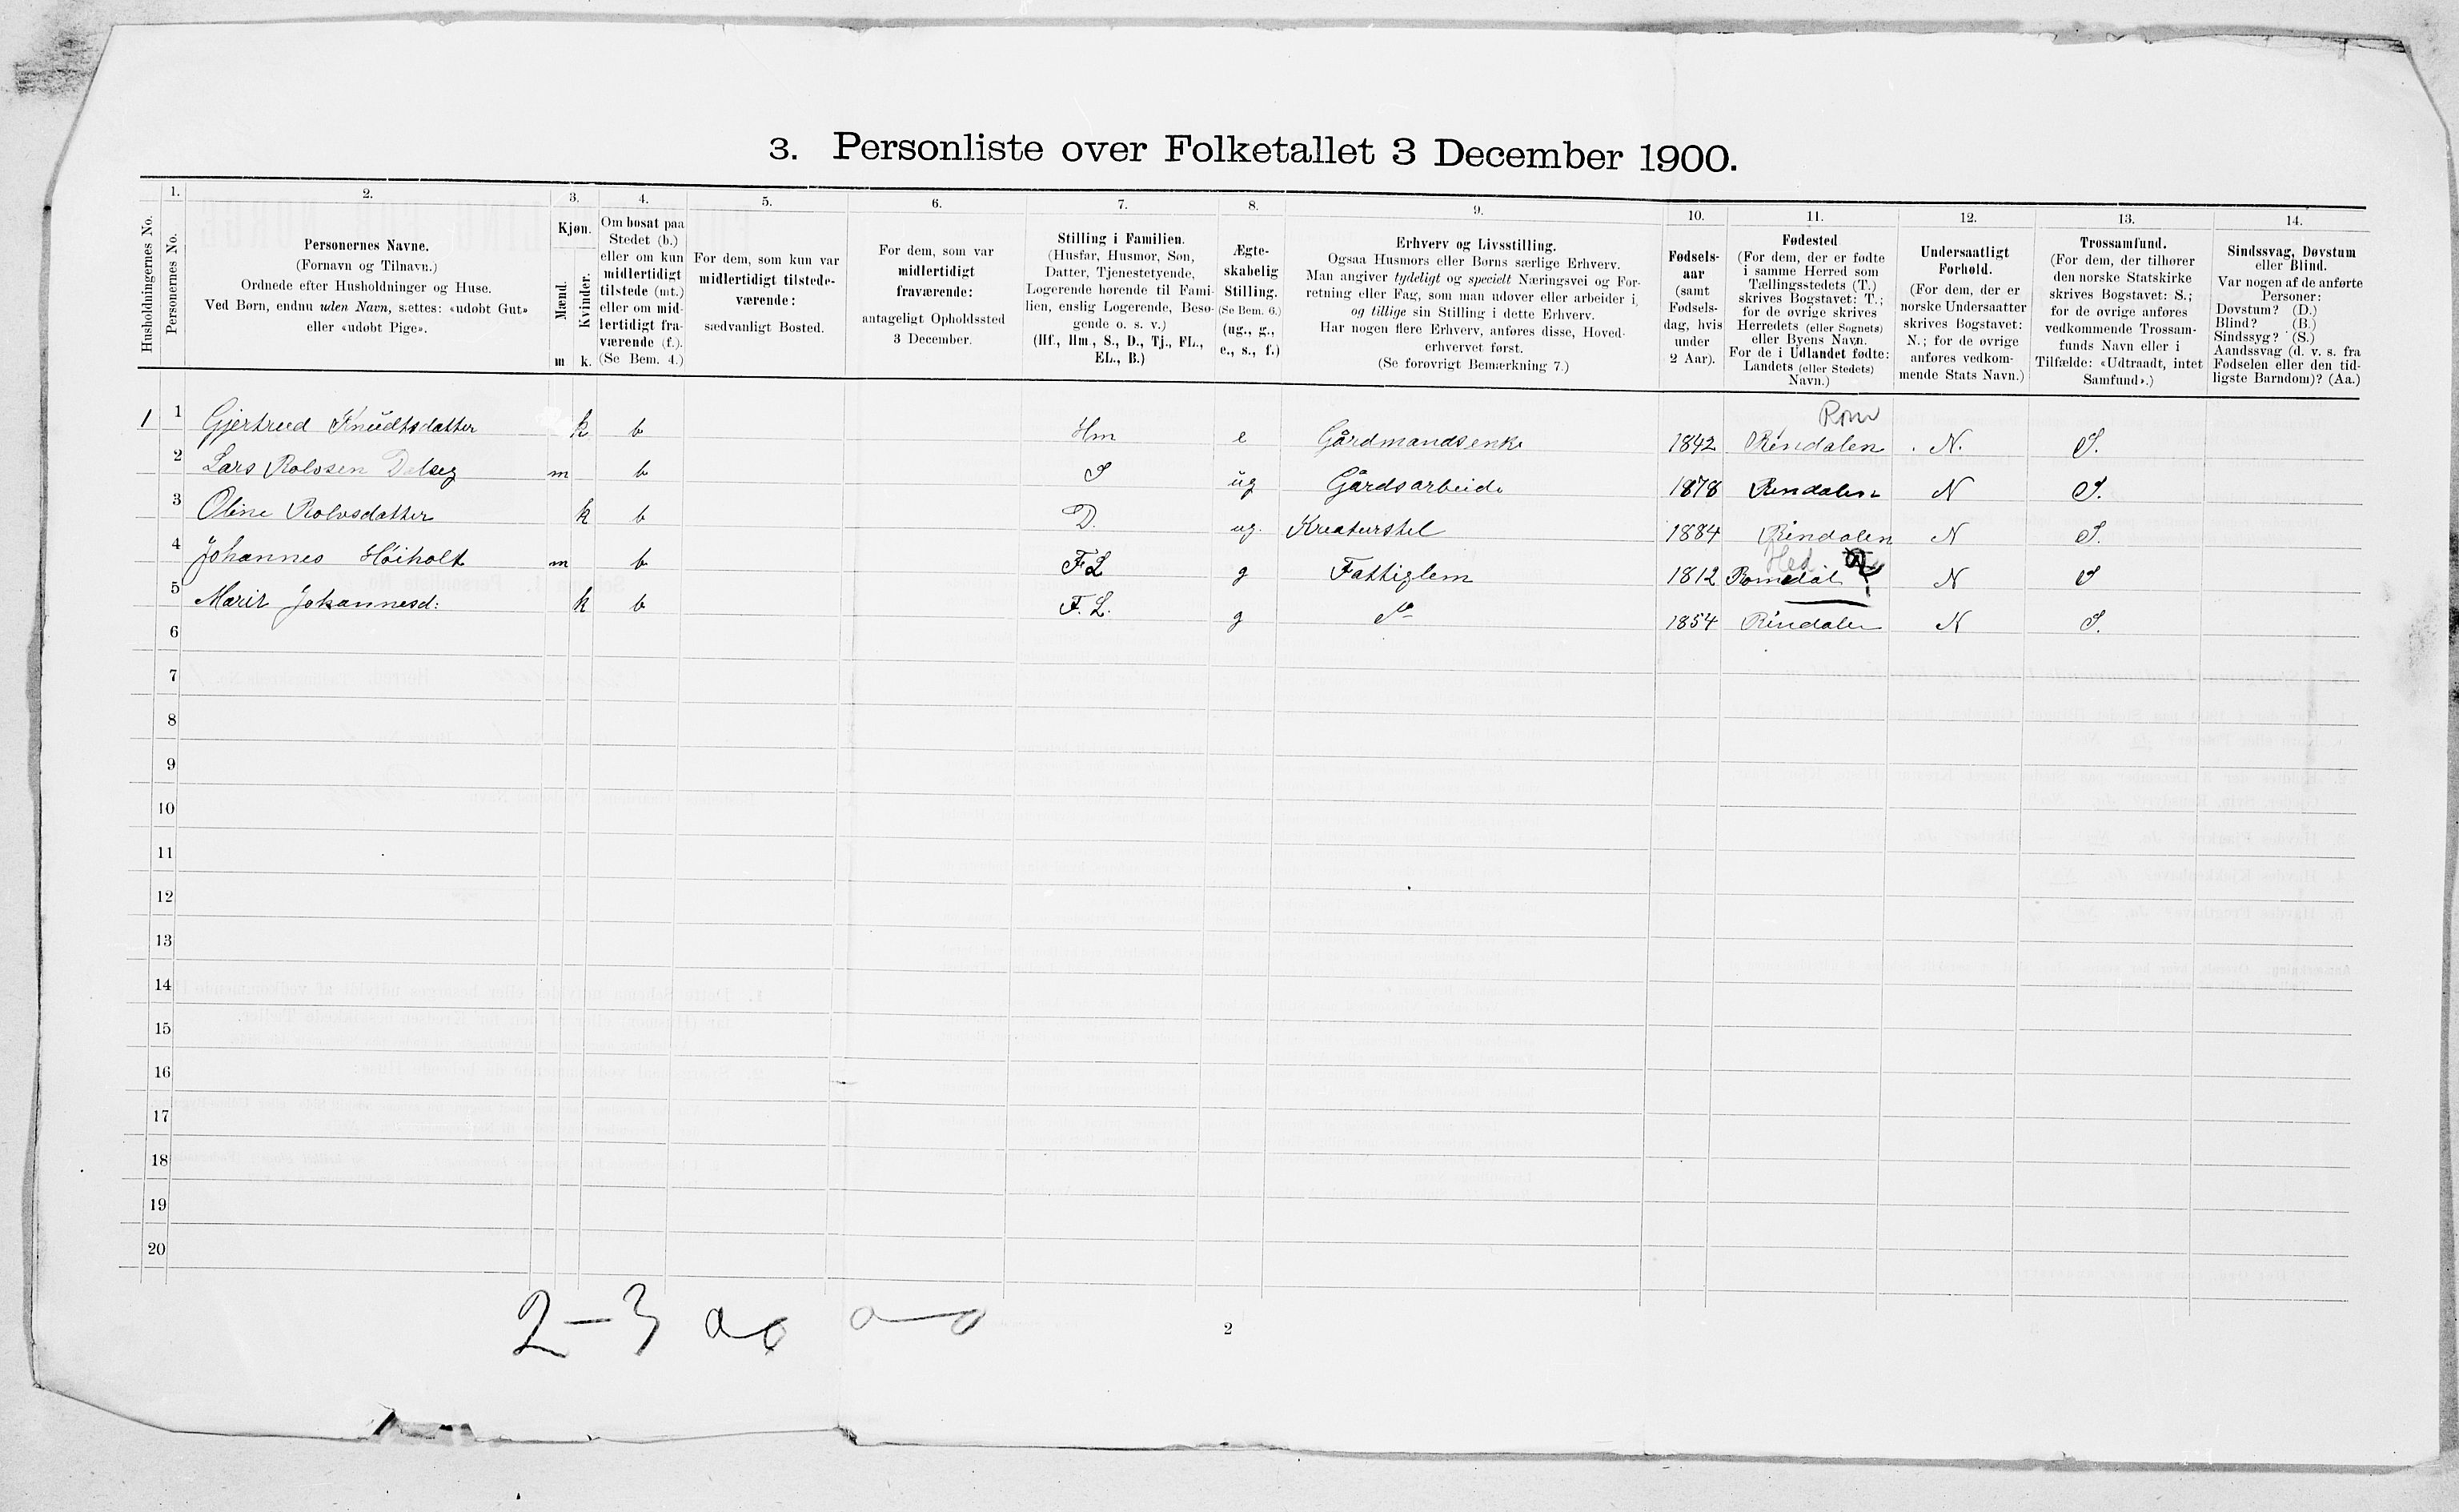 3. Personliste over Folketallet 3 December 1900.
1. 2. 3. 4. 5. 6. 7. 8. 9. 10. 11. 12. 13. 14.
Husholdningernes No.
Personernes No.
Personernes Navne.
(Fornavn og Tilnavn.)
Ordnede efter Husholdninger og Huse.
Ved Børn, endnu uden Navn, sættes: «udøbt Gut»
eller «udøbt Pige».
Kjøn.
Mænd.
Kvinder.
m k.
Om bosat paa
Stedet (b.)
eller om kun
midlertidigt
tilstede (mt.)
eller om mid-
lertidigt fra-
værende (f.).
(Se Bem. 4.)
For dem, som kun var
midlertidigt tilstede-
værende:
sædvanligt Bosted.
For dem, som var
midlertidigt
fraværende:
antageligt Opholdssted
3 December.
Stilling i Familien.
(Husfar, Husmor, Søn,
Datter, Tjenestetyende,
Logerende hørende til Fami-
lien, enslig Logerende, Besø-
gende o. s. v.)
(Hf., Hm., S., D., Tj., FL.,
EL., B.)
Ægte-
skabelig
Stilling.
(Se Bem. 6.)
(ug., g.,
e., s., f.)
Erhverv og Livsstilling.
Ogsaa Husmors eller Børns særlige Erhverv.
Man angiver tydeligt og specielt Næringsvei og For-
retning eller Fag, som man udøver eller arbeider i,
og tillige sin Stilling i dette Erhverv.
Har nogen flere Erhverv, anføres disse, Hoved-
erhvervet først.
(Se forøvrigt Bemærkning 7.)
Fødsels-
aar
(samt
Fødsels-
dag, hvis
under
2 Aar).
Fødested
(For dem, der er fødte
i samme Herred som
Tællingsstedets (T.)
skrives Bogstavet: T.;
for de øvrige skrives
Herredets (eller Sognets)
eller Byens Navn.
For de i Udlandet fødte:
Landets (eller Stedets)
Navn.)
Undersaatligt
Forhold.
(For dem, der er
norske Undersaatter
skrives Bogstavet:
N.; for de øvrige
anføres vedkom-
mende Stats Navn.)
Trossamfund.
(For dem, der tilhører
den norske Statskirke
skrives Bogstavet: S.;
for de øvrige anføres
vedkommende Trossam-
funds Navn eller i
Tilfælde: «Udtraadt, intet
Samfund».)
Sindssvag, Døvstum
eller Blind.
Var nogen af de anførte
Personer:
Døvstum? (D.)
Blind? (B.)
Sindssyg? (S.)
Aandssvag (d. v. s. fra
Fødselen eller den tid-
ligste Barndom)? (Aa.)
Rom
1 1 Gjertrud Knudtsdatter k b Hm e Gårdmandsenke 1842 Rindalen N. S.
2 Lars Rolvsen Dalseg m b S ug Gårdsarbeide 1878 Rindalen N S.
3 Oline Rolvsdatter k b D. ug. Kreaturstel 1884 Rindalen N S.
Hed
4 Johannes Høiholt m b FL g Fattiglem 1812 Romedal ? N S
5 Marit Johannesd: k b F. L. g 1854 Rindalen N S.
6
7
8
9
10
11
12
13
14
15
16
17
18
19
20
2-3
2